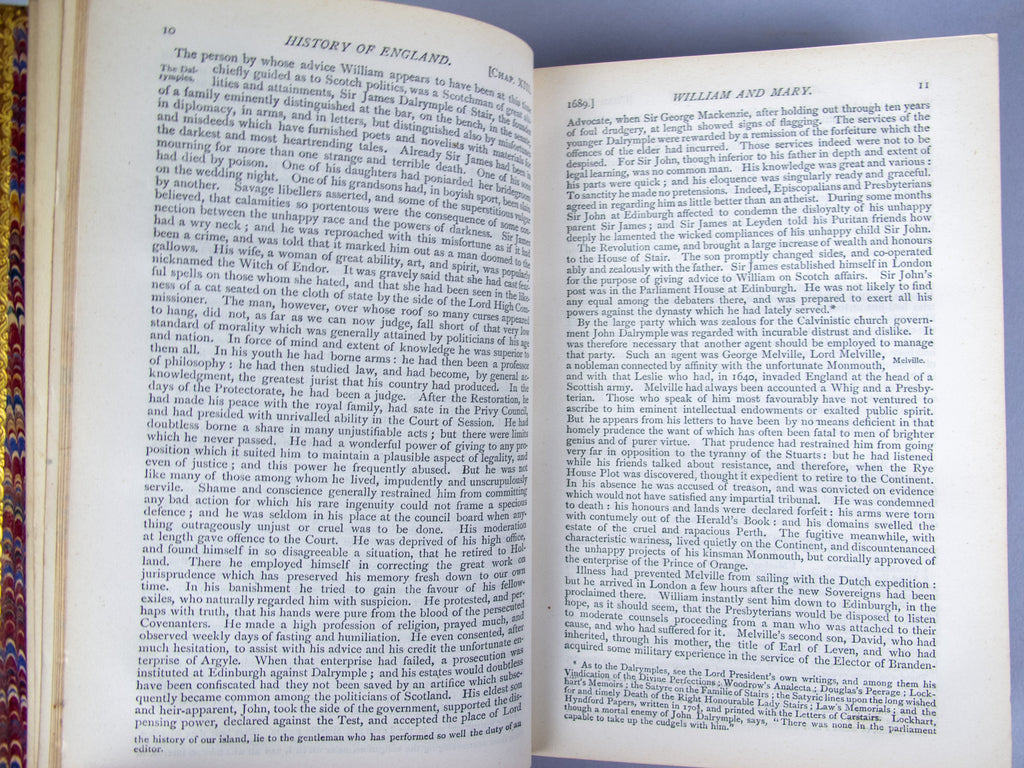 10
HISTORY OF ENGLAND.
[CHAP. XIII.
The person by whose advice William appears to have been at this time
The Dalrymples.
chiefly guided as to Scotch politics, was a Scotchman of great abi-
lities and attainments, Sir James Dalrymple of Stair, the founder
of a family eminently distinguished at the bar, on the bench, in the senate,
in diplomacy, in arms, and in letters, but distinguished also by misfortunes
and misdeeds which have furnished poets and novelists with materials for
the darkest and most heartrending tales. Already Sir James had been in
mourning for more than one strange and terrible death. One of his sons
had died by poison. One of his daughters had poniarded her bridegroom
on the wedding night. One of his grandsons had, in boyish sport, been slain
by another. Savage libellers asserted, and some of the superstitious vulgar
believed, that calamities so portentous were the consequence of some con-
nection between the unhappy race and the powers of darkness. Sir James
had a wry neck; and he was reproached with this misfortune as if it had
been a crime, and was told that it marked him out as a man doomed to the
gallows. His wife, a woman of great ability, art, and spirit, was popularly
nicknamed the Witch of Endor. It was gravely said that she had cast fear-
ful spells on those whom she hated, and that she had been seen in the like-
ness of a cat seated on the cloth of state by the side of the Lord High Com-
missioner. The man, however, over whose roof so many curses appeared
to hang, did not, as far as we can now judge, fall short of that very low
standard of morality which was generally attained by politicians of his age
and nation. In force of mind and extent of knowledge he was superior to
them all. In his youth he had borne arms: he had then been a professor
of philosophy: he had then studied law, and had become, by general ac-
knowledgment, the greatest jurist that his country had produced. In the
days of the Protectorate, he had been a judge. After the Restoration, he
had made his peace with the royal family, had sate in the Privy Council,
and had presided with unrivalled ability in the Court of Session. He had
doubtless borne a share in many unjustifiable acts; but there were limits
which he never passed. He had a wonderful power of giving to any pro-
position which it suited him to maintain a plausible aspect of legality, and
even of justice; and this power he frequently abused. But he was not
like many of those among whom he lived, impudently and unscrupulously
servile. Shame and conscience generally restrained him from committing
any bad action for which his rare ingenuity could not frame a specious
defence; and he was seldom in his place at the council board when any-
thing outrageously unjust or cruel was to be done. His moderation
at length gave offence to the Court. He was deprived of his high office,
and found himself in so disagreeable a situation, that he retired to Hol-
land. There he employed himself in correcting the great work on
jurisprudence which has preserved his memory fresh down to our own
time. In his banishment he tried to gain the favour of his fellow-
exiles, who naturally regarded him with suspicion. He protested, and per-
haps with truth, that his hands were pure from the blood of the persecuted
Covenanters. He made a high profession of religion, prayed much, and
observed weekly days of fasting and humiliation. He even consented, after
much hesitation, to assist with his advice and his credit the unfortunate en-
terprise of Argyle. When that enterprise had failed, a prosecution was
instituted at Edinburgh against Dalrymple; and his estates would doubtless
have been confiscated had they not been saved by an artifice which subse-
quently became common among the politicians of Scotland. His eldest son
and heir-apparent, John, took the side of the government, supported the dis-
pensing power, declared against the Test, and accepted the place of Lord
the history of our island, lie to the gentleman who has performed so well the duty of an
editor.
1689.]
WILLIAM AND MARY.
11
Advocate, when Sir George Mackenzie, after holding out through ten years
of foul drudgery, at length showed signs of flagging. The services of the
younger Dalrymple were rewarded by a remission of the forfeiture which the
offences of the elder had incurred. Those services indeed were not to be
despised. For Sir John, though inferior to his father in depth and extent of
legal learning, was no common man. His knowledge was great and various:
his parts were quick; and his eloquence was singularly ready and graceful.
To sanctity he made no pretensions. Indeed, Episcopalians and Presbyterians
agreed in regarding him as little better than an atheist. During some months
Sir John at Edinburgh affected to condemn the disloyalty of his unhappy
parent Sir James; and Sir James at Leyden told his Puritan friends how
deeply he lamented the wicked compliances of his unhappy child Sir John.
The Revolution came, and brought a large increase of wealth and honours
to the House of Stair. The son promptly changed sides, and co-operated
ably and zealously with the father. Sir James established himself in London
for the purpose of giving advice to William on Scotch affairs. Sir John's
post was in the Parliament House at Edinburgh. He was not likely to find
any equal among the debaters there, and was prepared to exert all his
powers against the dynasty which he had lately served.*
By the large party which was zealous for the Calvinistic church govern-
ment John Dalrymple was regarded with incurable distrust and dislike. It
was therefore necessary that another agent should be employed to manage
that party. Such an agent was George Melville, Lord Melville,
Melville.
a nobleman connected by affinity with the unfortunate Monmouth,
and with that Leslie who had, in 1640, invaded England at the head of a
Scottish army. Melville had always been accounted a Whig and a Presby-
terian. Those who speak of him most favourably have not ventured to
ascribe to him eminent intellectual endowments or exalted public spirit.
But he appears from his letters to have been by no means deficient in that
homely prudence the want of which has often been fatal to men of brighter
genius and of purer virtue. That prudence had restrained him from going
very far in opposition to the tyranny of the Stuarts: but he had listened
while his friends talked about resistance, and therefore, when the Rye
House Plot was discovered, thought it expedient to retire to the Continent.
In his absence he was accused of treason, and was convicted on evidence
which would not have satisfied any impartial tribunal. He was condemned
to death: his honours and lands were declared forfeit: his arms were torn
with contumely out of the Herald's Book: and his domains swelled the
estate of the cruel and rapacious Perth. The fugitive meanwhile, with
characteristic wariness, lived quietly on the Continent, and discountenanced
the unhappy projects of his kinsman Monmouth, but cordially approved of
the enterprise of the Prince of Orange.
Illness had prevented Melville from sailing with the Dutch expedition:
but he arrived in London a few hours after the new Sovereigns had been
proclaimed there. William instantly sent him down to Edinburgh, in the
hope, as it should seem, that the Presbyterians would be disposed to listen
to moderate counsels proceeding from a man who was attached to their
cause, and who had suffered for it. Melville's second son, David, who had
inherited, through his mother, the title of Earl of Leven, and who had
acquired some military experience in the service of the Elector of Branden-
* As to the Dalrymples, see the Lord President's own writings, and among them his
Vindication of the Divine Perfections; Woodrow's Analecta; Douglas's Peerage; Lock-
hart's Memoirs; the Satyre on the Familie of Stairs; the Satyric lines upon the long wished
for and timely Death of the Right Honourable Lady Stairs; Law's Memorials; and the
Hyndford Papers, written in 170¾, and printed with the Letters of Carstairs. Lockhart,
though a mortal enemy of John Dalrymple, says, "There was none in the parliament
capable to take up the cudgels with him."